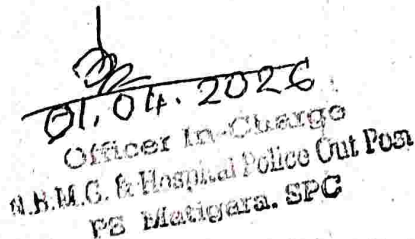 01.04.2026
Officer In-Charge
N.B.M.C. & Hospital Police Out Post
PS Matigara. SPC